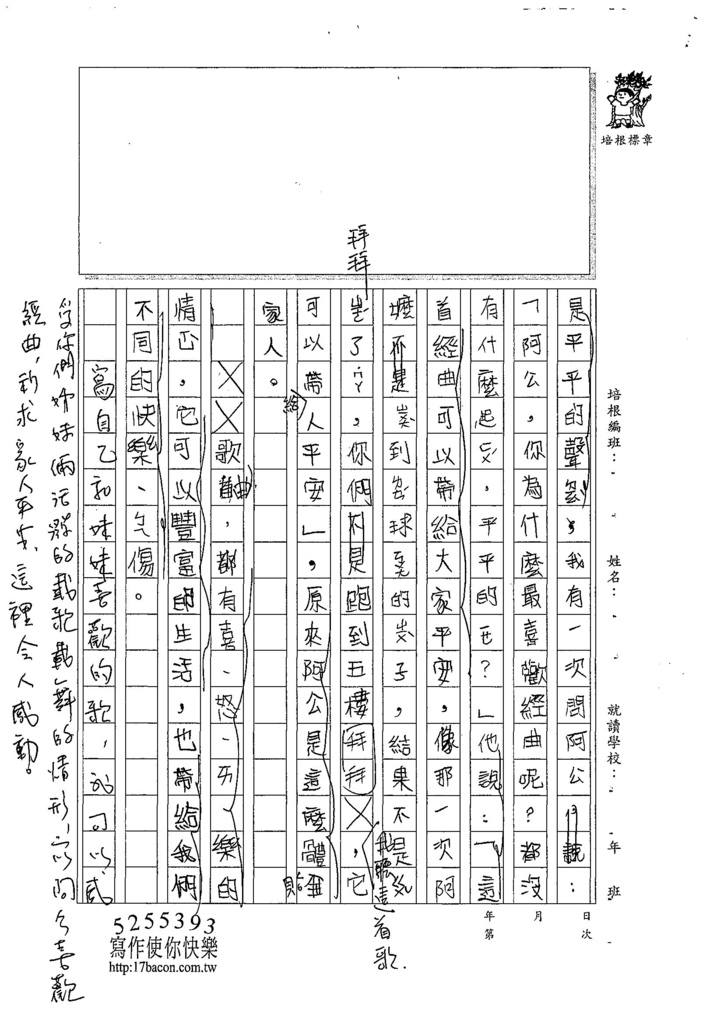 培根標章
培根編班：
姓名：
就讀學校：
年　班
日次
月
年第
是平平的聲，我有一次問阿公說：
「阿公，你為什麼最喜歡經曲呢？都沒
有什麼起ㄈㄨˊ，平平的ㄝ？」他說：「這
首經曲可以帶給大家平安，像那一次阿
嬤不是到球的子，結果不是
了ㄚ，你們不是跑到五樓拜拜，它
拜拜
我聽這首歌．
可以帶給人平安」，原來阿公是這麼體貼
家人。
歌曲，都有喜、怒、ㄞ、樂的
情，它可以豐富的生活，也帶給我們
不同的快樂、傷。
寫自己和妹妹喜歡的歌，可以感
受你們姊妹倆活潑的載歌載舞的情形，問公喜歡
經曲，祈求家人平安，這裡令人感動。
5255393
寫作使你快樂
http:17bacon.com.tw